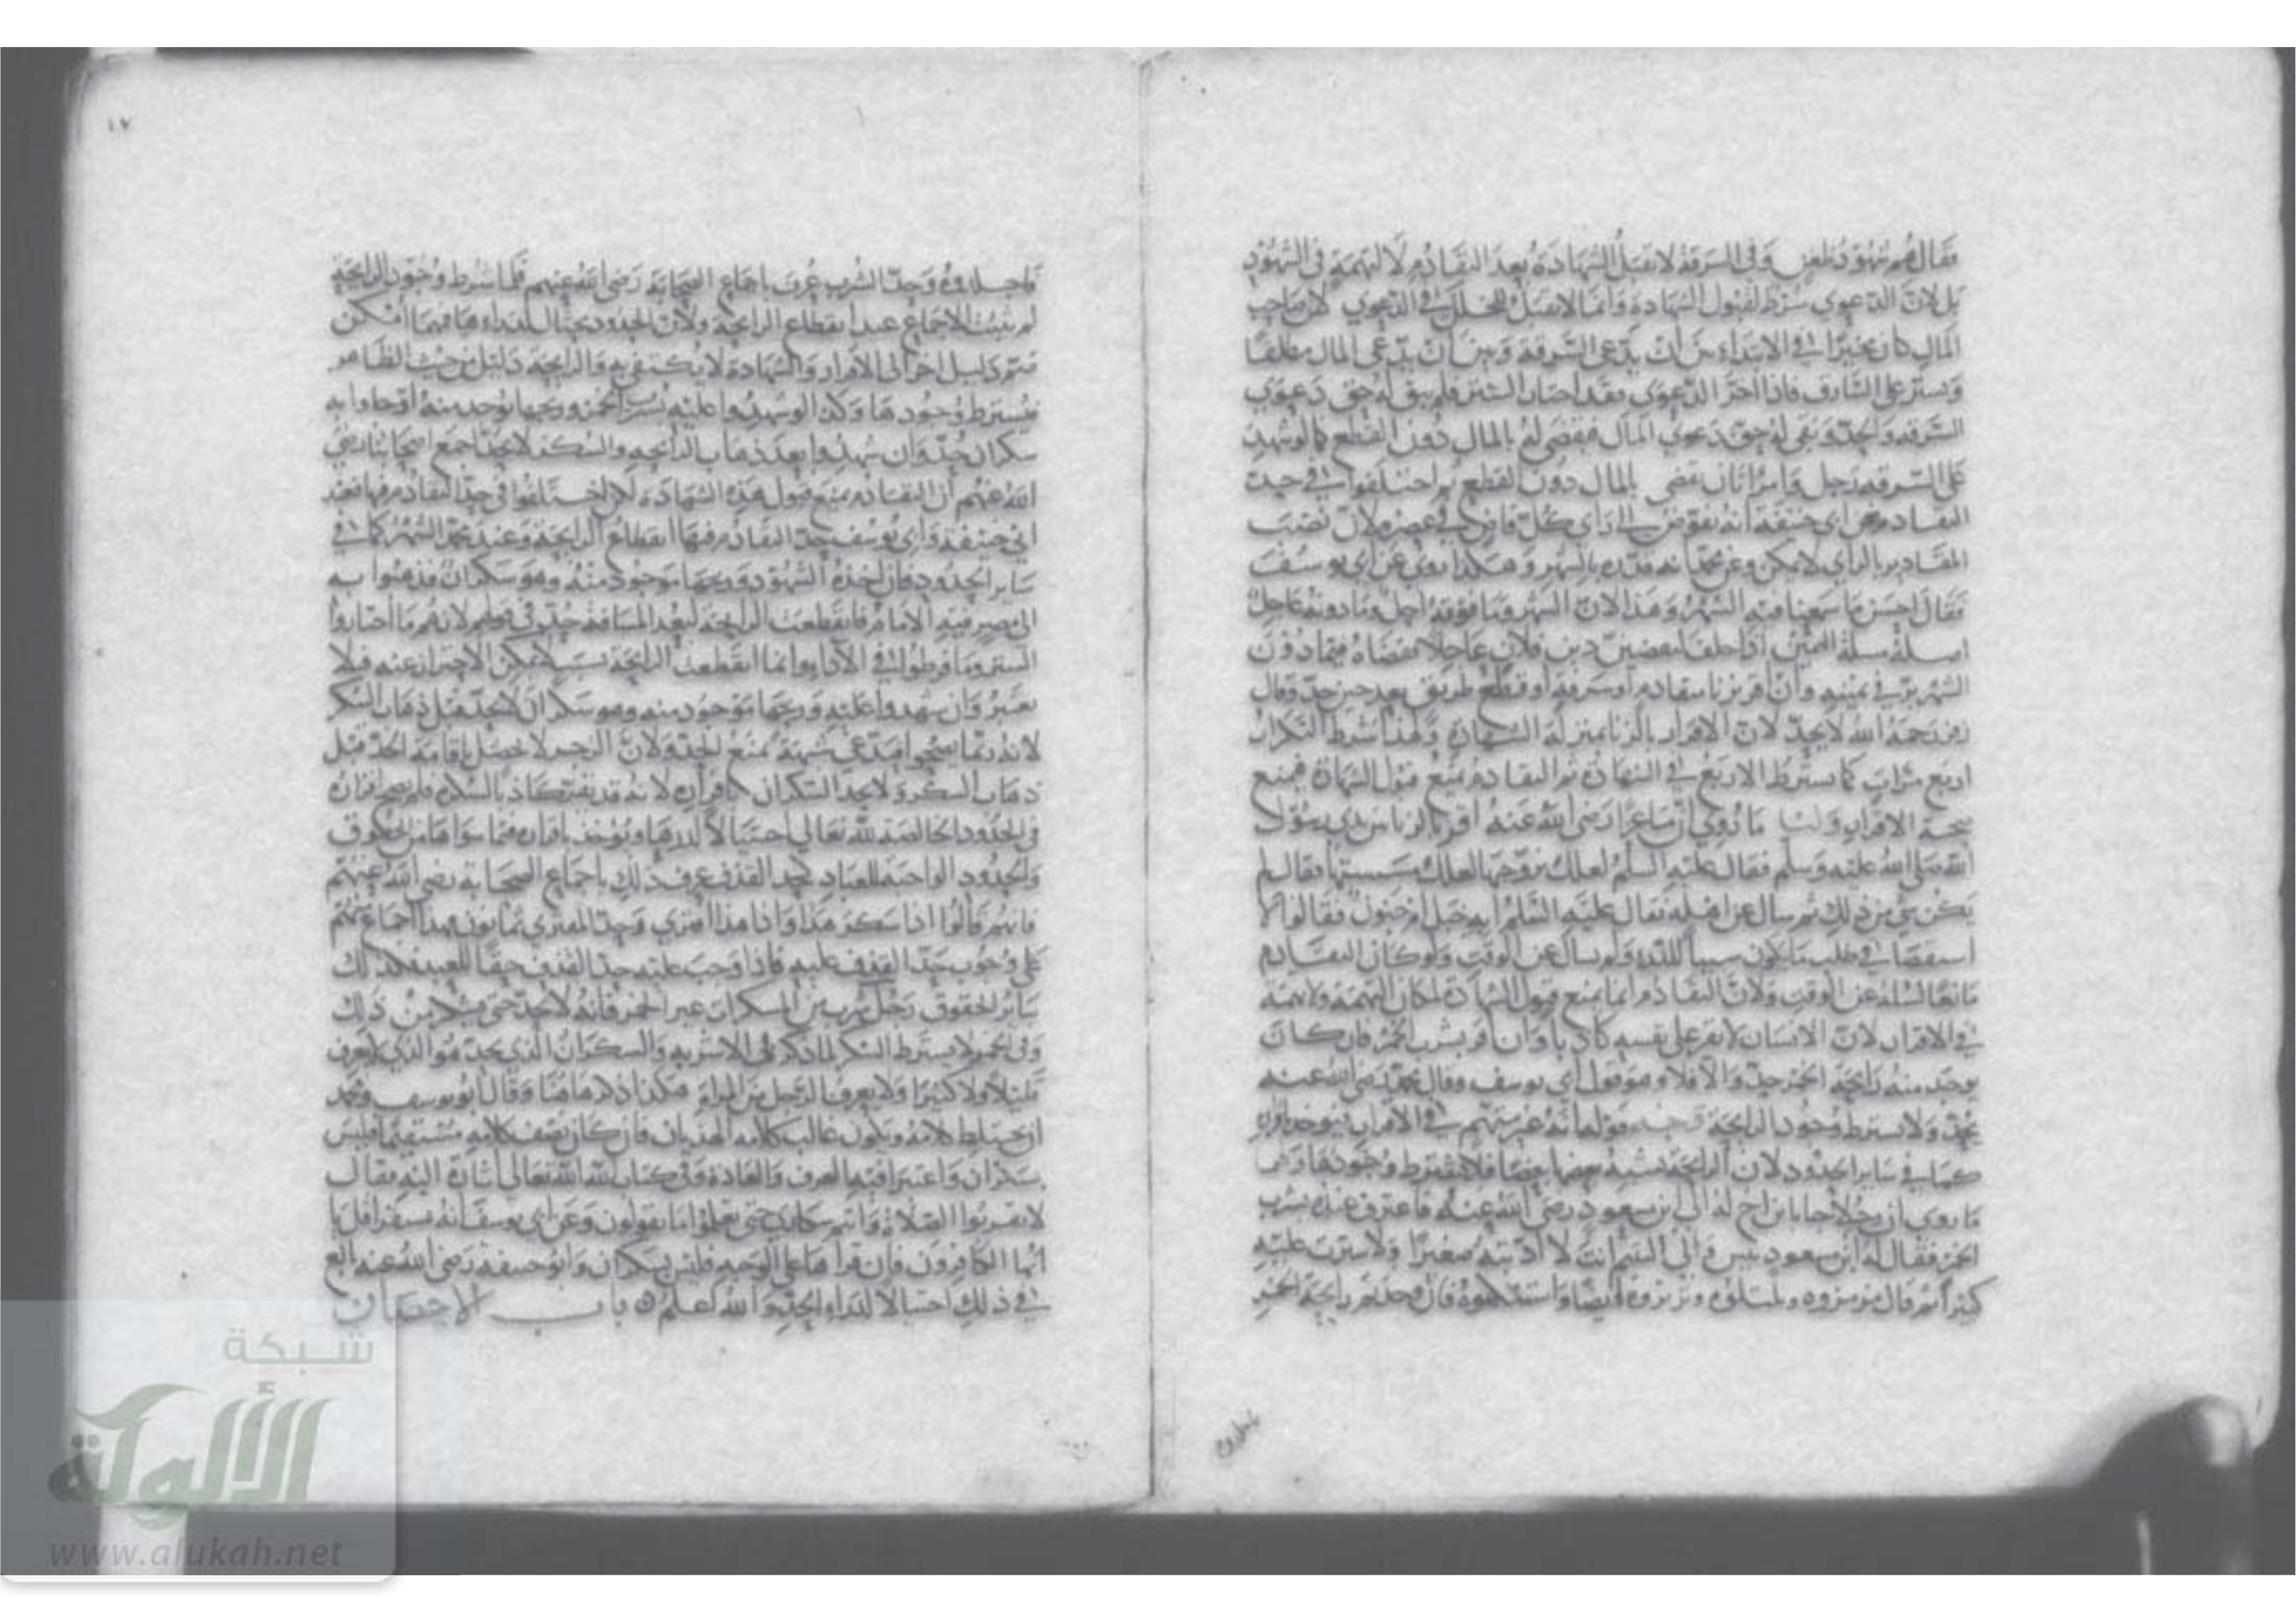 فقال هم شهود ضغن وفي السرقة لا تقبل الشهادة بعد التقادم لا لتهمة في الشهود
بل لان الدعوي شرط لقبول الشهادة وانما لا تقبل لخلل في الدعوي لان صاحب
المال كان مخيرا في الابتداء بين ان يدعي السرقة وبين ان يدعي المال مطلقا
ويستر على السارق فاذا اخر الدعوي فقد اختار الستر فلم يبق له حق دعوي
السرقة والحد وبقي له حق دعوي المال فيقضى له بالمال دون القطع كما لو شهد
على السرقة رجل وامرأتان يقضى بالمال دون القطع ثم اختلفوا في حد
التقادم عن ابي حنيفة انه يفوض الى راي كل قاض في عصره لان نصب
المقادير بالراي لا يمكن وعن محمد انه قدره بالشهر وهكذا روي عن ابي يوسف
فقال احسن ما سمعنا فيه الشهر وهذا لان الشهر وما فوقه اجل وما دونه عاجل
اصله مسئلة اليمين اذا حلف ليقضين دين فلان عاجلا فقضاه فيما دون
الشهر بر في يمينه وان اقر بزنا متقادم او سرقة او قطع طريق بعد حين حد وقال
زفر رحمه الله لا يحد لان الاقرار بالزنا بمنزلة الشهادة ولهذا شرط التكرار
اربع مرات كما يشترط الاربع في الشهادة ثم التقادم يمنع قبول الشهادة فيمنع
صحة الاقرار ولنا ما روي ان ماعزا رضي الله عنه اقر بالزنا بين يدي رسول
الله صلى الله عليه وسلم فقال عليه السلم لعلك تزوجتها لعلك مسستها فقال لم
يكن شي من ذلك ثم سال عن اهله فقال عليه السلم ابه خبل ام جنون فقالوا لا
استقصا في طلب ما يكون سببا للدرء ولم يسال عن الوقت ولو كان التقادم
مانعا لسئله عن الوقت ولان التقادم انما يمنع قبول الشهادة لمكان التهمة ولا تهمة
في الاقرار لان الانسان لا يقر على نفسه كاذبا وان اقر بشرب الخمر فان كان
يوجد منه رايحة الخمر حد والا فلا وهو قول ابي يوسف وقال محمد رضي الله عنه
يحد ولا يشترط وجود الرايحة قوله انه غير متهم في الاقرار فيوخذ باقراره
كما في ساير الحدود لان الرايحة يشبه بعضها بعضا فلا يشترط وجودها
ما روي ان رجلا جا بابن اخ له الى ابن مسعود رضي الله عنه فاعترف عنده بشرب
الخمر فقال له ابن مسعود بئس ولي اليتيم انت لا ادبته صغيرا ولا سترت عليه
كبيرا ثم قال مزمزوه وتلتلوه وترتروه ايضا واستنكهوه فان وجدتم رايحة الخمر
فاجلدوه وحد الشرب عرف باجماع الصحابة رضي الله عنهم فلما شرط وجود الرايحة
لم يثبت الاجماع عند انقطاع الرايحة ولان الحدود يحتال لدراءها فمهما امكن
ضم دليل اخر الى الاقرار والشهادة لا يكتفى به والرايحة دليل من حيث الظاهر
فيشترط وجودها وكذا لو شهدوا عليه بشرب الخمر وريحها يوجد منه او جاوا به
سكران حد وان شهدوا بعد ذهاب الرايحة والسكر لا يحد اجمع اصحابنا رضي
الله عنهم ان التقادم يمنع قبول هذه الشهادة لكن اختلفوا في حد التقادم فيها فعند
ابي حنيفة وابي يوسف حد التقادم فيها انقطاع الرايحة وعند محمد الشهر كما في
ساير الحدود فان اخذه الشهود وريحها موجود منه وهو سكران فذهبوا به
الى مصر فيه الامام فانقطعت الرايحة لبعد المسافة حد في قولهم لانهم ما اختاروا
الستر وما فرطوا في الاداء وانما انقطعت الرايحة بسبب لا يمكن الاحتراز عنه فلا
يعتبر وان شهدوا عليه وريحها موجود منه وهو سكران لا يحد قبل ذهاب السكر
لانه ربما يصحوا فيدعي شبهة تمنع الحد ولان الزجر لا يحصل باقامة الحد قبل
ذهاب السكر ولا يحد السكران باقراره لانه قد يقر كاذبا لسكره فلم يصح اقراره
في الحدود الخالصة لله تعالى احتيالا لدرءها ويوخذ باقراره فيما سواها من الحقوق
والحدود الواجبة للعباد كحد القذف عرف ذلك باجماع الصحابة رضي الله عنهم
فانهم قالوا اذا سكر هذا واذا هذا افتري وحد المفتري ثمانون فهذا اجماع منهم
على وجوب حد القذف عليه فاذا وجب عليه حد القذف حقا للعبد فكذلك
سائر الحقوق رجل شرب من المسكرات غير الخمر فانه لا يحد حتى يسكر من ذلك
وفي الخمر لا يشترط السكر لما ذكر في الاشربة والسكران الذي يحد هو الذي لا يعرف
قليلا ولا كثيرا ولا يعرف الرجل من المراة هكذا ذكر هاهنا وقال ابو يوسف ومحمد
ان يختلط كلامه ويكون غالب كلامه الهذيان فان كان نصف كلامه مستقيما فليس
بسكران واعتبرا فيه العرف والعادة وفي كتاب الله تعالى اشارة اليه فقال
لا تقربوا الصلاة وانتم سكاري حتى تعلموا ما تقولون وعن ابي يوسف انه يستقرأ قل يا
ايها الكافرون فان قراها على الوجه فليس بسكران وابو حنيفة رضي الله عنه بالغ
في ذلك احتيالا لدراء الحد والله اعلم باب الاحصان
١٧
شبكة
الألوكة
www.alukah.net